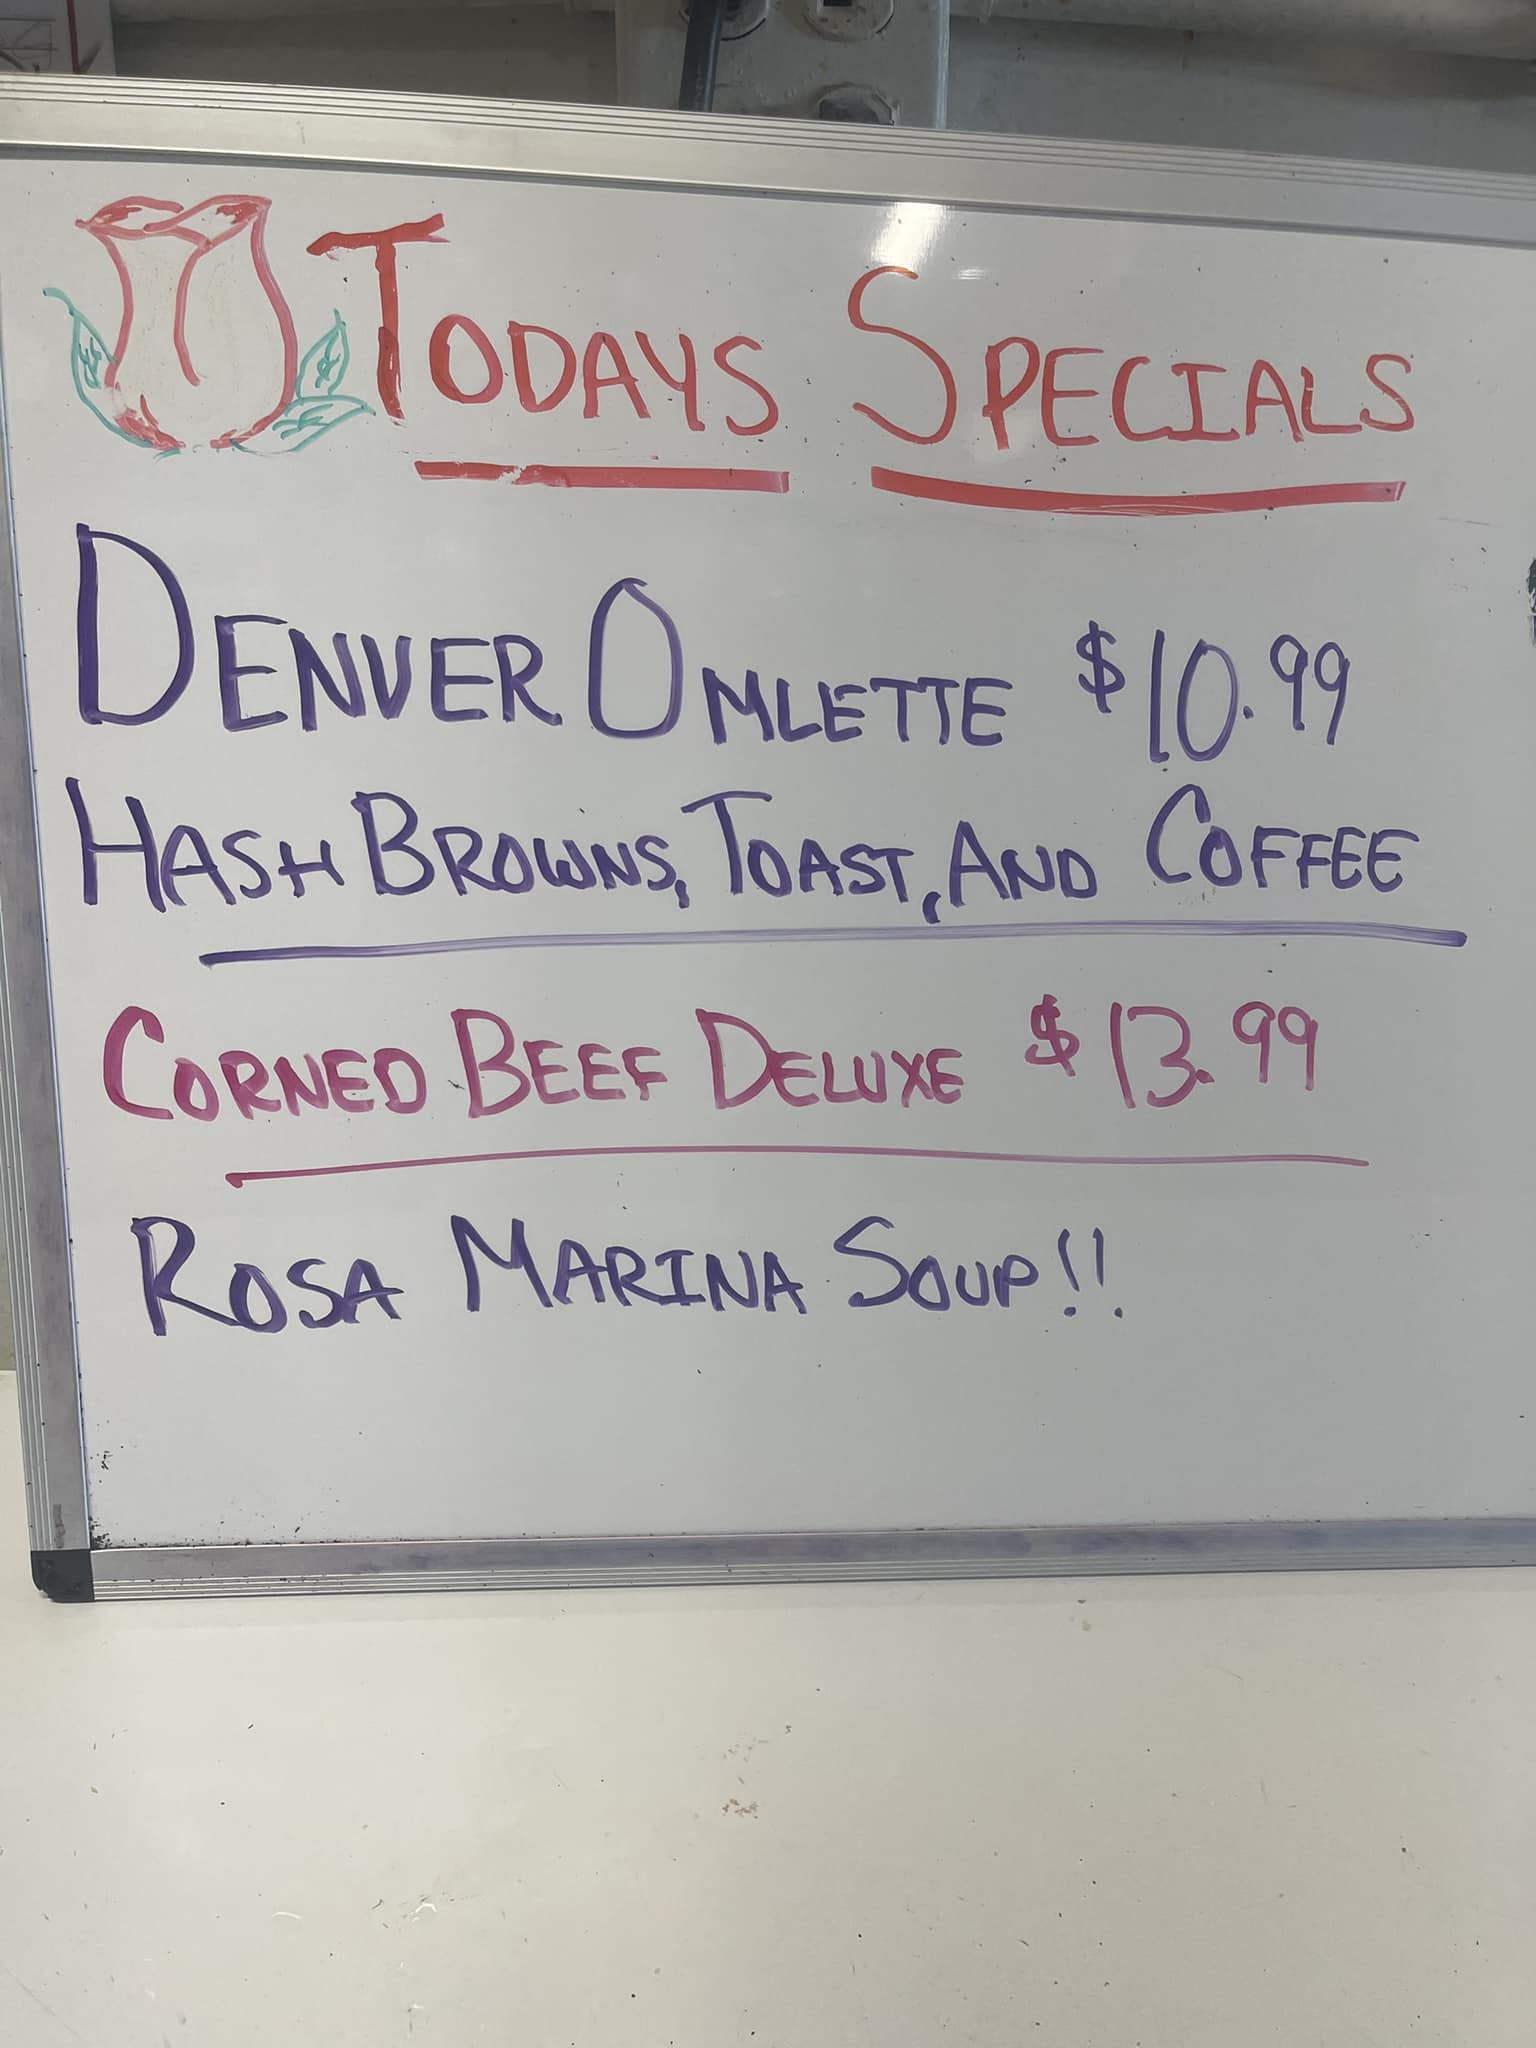 TODAYS SPECIALS
DENVER OMLETTE $10.99
HASH BROWNS, TOAST, AND COFFEE
CORNED BEEF DELUXE $13.99
ROSA MARINA SOUP!!